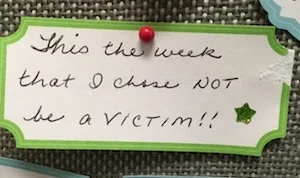 This the week
that I chose NOT
be a VICTIM!!